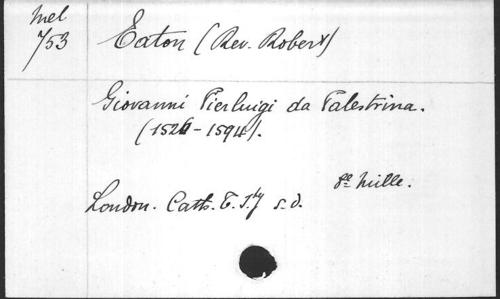 Mel
753
Eaton (Rev. Robert)
Giovanni Pierluigi da Palestrina.
(1526-1594).
8e mille.
London. Cath. T. Sty s.d.